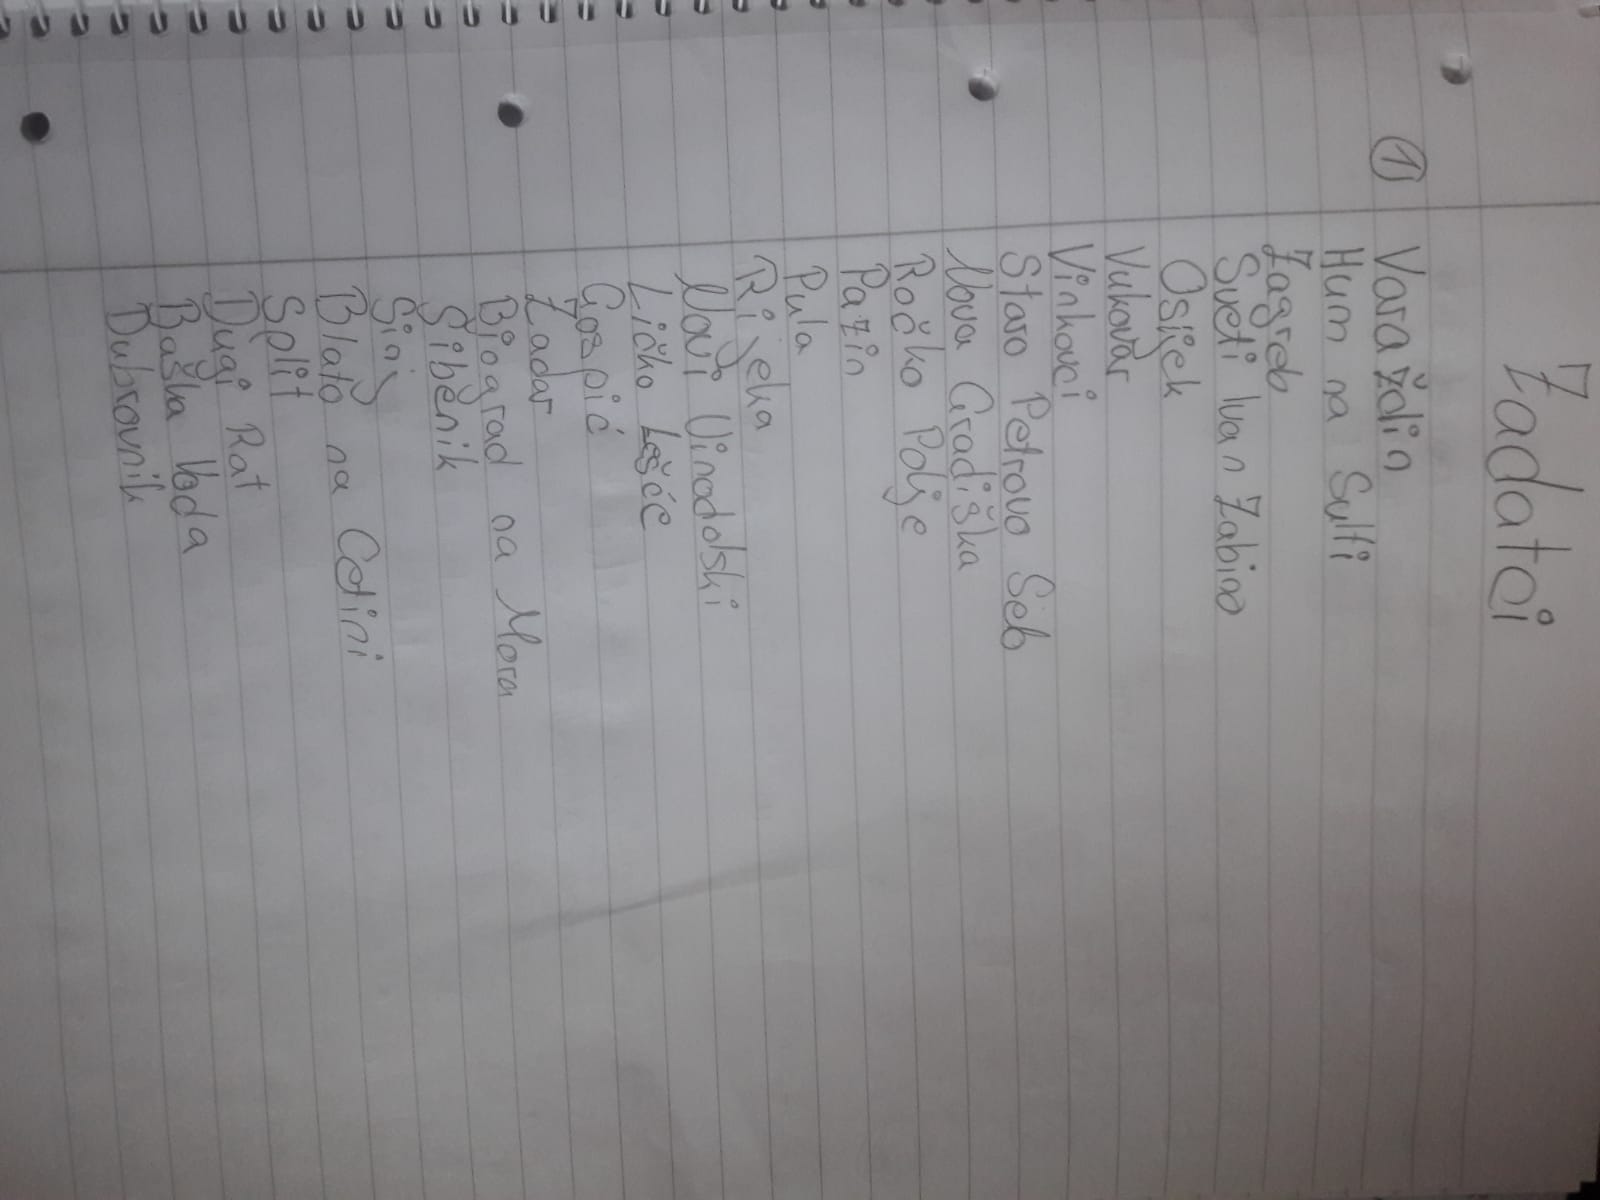 Zadatci
① Varaždin
Hum na Sutli
Zagreb
Sveti Ivan Žabno
Osijek
Vukovar
Vinkovci
Staro Petrovo Selo
Nova Gradiška
Ročko Polje
Pazin
Pula
Rijeka
Novi Vinodolski
Ličko Lešće
Gospić
Zadar
Biograd na Moru
Šibenik
Sinj
Blato na Cetini
Split
Dugi Rat
Baška Voda
Dubrovnik